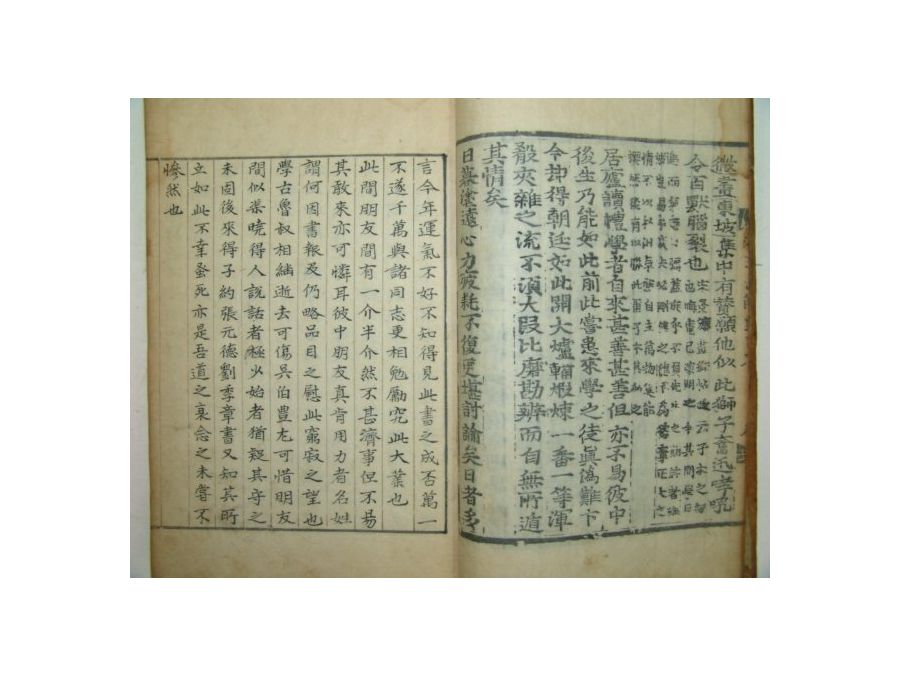 微畫東坡集中有贊願他似此獅子奮迅哮吼
令百獸腦裂也
居廬讀禮學者自來甚善甚善但亦不易彼中
後生乃能如此前此嘗患來學之徒眞僞難卞
今却得朝廷如此開大爐鞴煅煉一番一等渾
殽夾雜之流不須大段比磨勘辨而自無所遁
其情矣
日暮塗遠心力疲耗不復更堪討論矣日者多
言今年運氣不好不知得見此書之成否萬一
不遂千萬與諸同志更相勉勵究此大業也
此間朋友間有一介半介然不甚濟事但不易
其敢來亦可憐耳彼中朋友真肯用力者名姓
謂何因書報及仍略品目之慰此窮寂之望也
學古魯叔相繼逝去可傷吳伯豊尤可惜朋友
間似渠曉得人說話者極少始者猶疑其守之
未固後來得子約張元德劉季章書又知其所
立如此不幸蚤死亦是吾道之衰念之未嘗不
慘然也